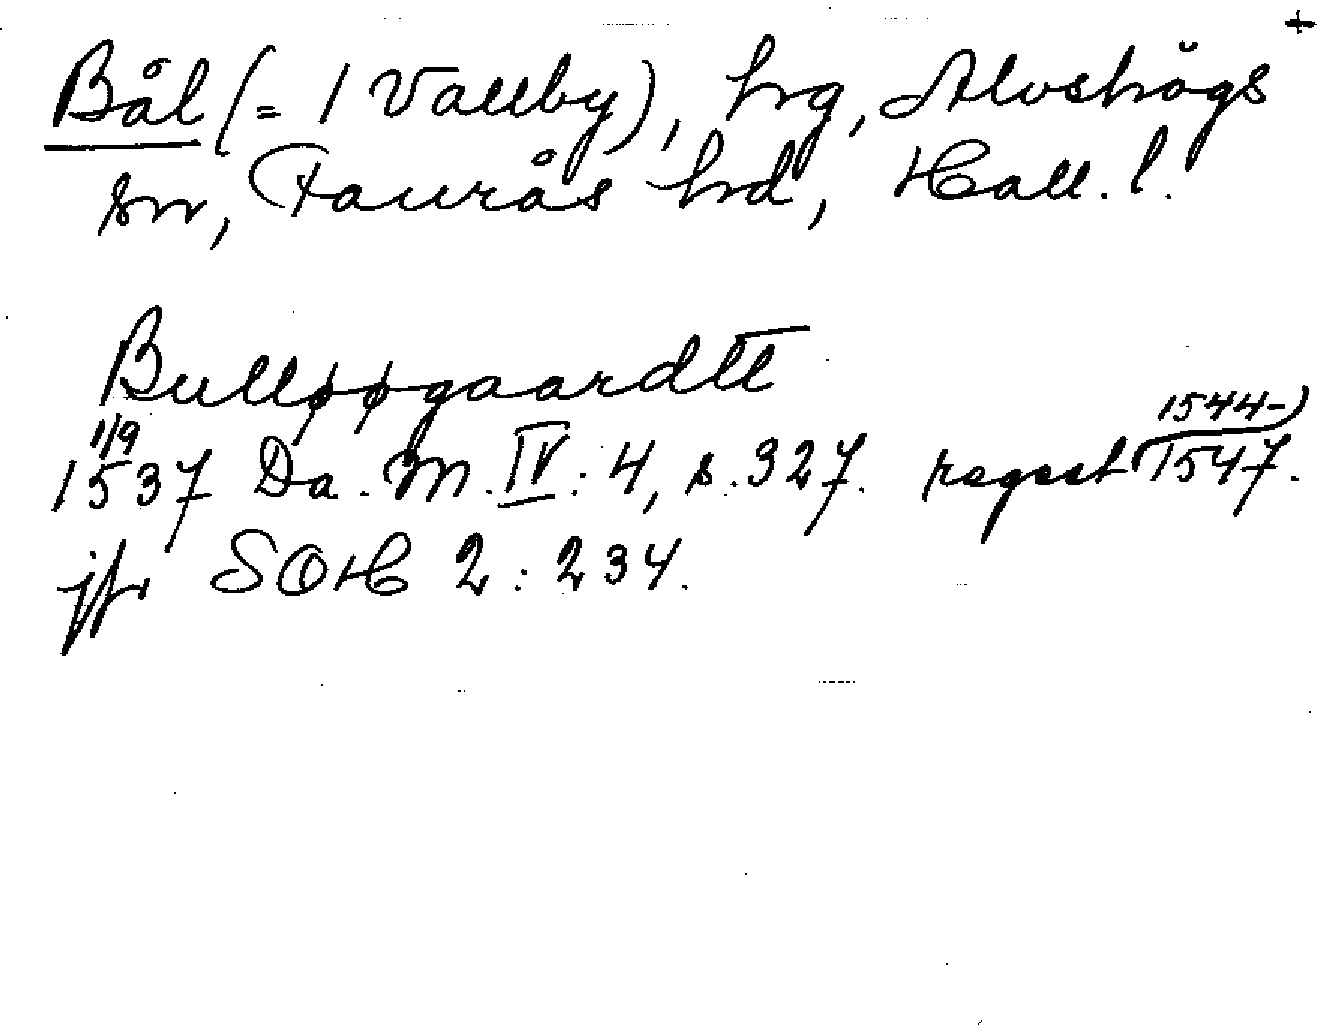 +
Bål (= 1 Vallby), hrg, Alvshögs
sn, Faurås hrd, Hall. l.
Bulløøgaardtt
1/9 1544-)
1537 Da. M. IV: 4, s. 327. regest 1547.
jfr SOH 2: 234.